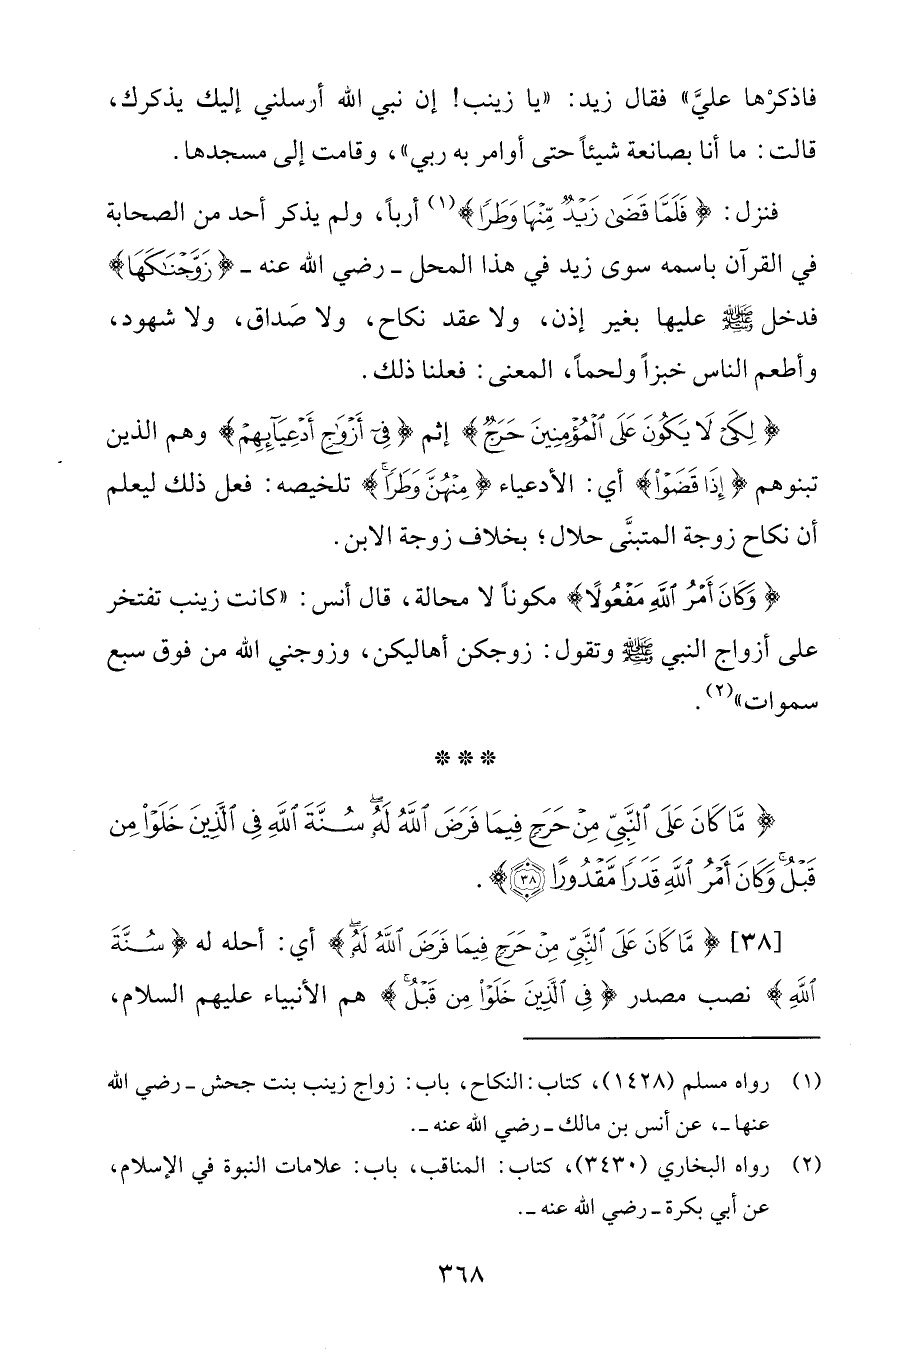 فاذكرْها عليَّ» فقال زيد: «يا زينب! إن نبي الله أرسلني إليك يذكرك،
قالت: ما أنا بصانعة شيئاً حتى أوامر به ربي»، وقامت إلى مسجدها.
فنزل: ﴿ فَلَمَّا قَضَىٰ زَيْدٌ مِّنْهَا وَطَرًا ﴾(١) أرباً، ولم يذكر أحد من الصحابة
في القرآن باسمه سوى زيد في هذا المحل ـ رضي الله عنه ـ ﴿ زَوَّجْنَاكَهَا ﴾
فدخل ﷺ عليها بغير إذن، ولا عقد نكاح، ولا صَداق، ولا شهود،
وأطعم الناس خبزاً ولحماً، المعنى: فعلنا ذلك.
﴿ لِكَيْ لَا يَكُونَ عَلَى ٱلْمُؤْمِنِينَ حَرَجٌ ﴾ إثم ﴿ فِيٓ أَزْوَٰجِ أَدْعِيَآئِهِمْ ﴾ وهم الذين
تبنوهم ﴿ إِذَا قَضَوْا۟ ﴾ أي: الأدعياء ﴿ مِنْهُنَّ وَطَرًا ۚ ﴾ تلخيصه: فعل ذلك ليعلم
أن نكاح زوجة المتبنَّى حلال؛ بخلاف زوجة الابن.
﴿ وَكَانَ أَمْرُ ٱللَّهِ مَفْعُولًا ﴾ مكوناً لا محالة، قال أنس: «كانت زينب تفتخر
على أزواج النبي ﷺ وتقول: زوجكن أهاليكن، وزوجني الله من فوق سبع
سموات»(٢).
* * *
﴿ مَّا كَانَ عَلَى ٱلنَّبِيِّ مِنْ حَرَجٍ فِيمَا فَرَضَ ٱللَّهُ لَهُۥ ۖ سُنَّةَ ٱللَّهِ فِي ٱلَّذِينَ خَلَوْا۟ مِن
قَبْلُ ۚ وَكَانَ أَمْرُ ٱللَّهِ قَدَرًا مَّقْدُورًا ٣٨ ﴾.
[٣٨] ﴿ مَّا كَانَ عَلَى ٱلنَّبِيِّ مِنْ حَرَجٍ فِيمَا فَرَضَ ٱللَّهُ لَهُۥ ۖ ﴾ أي: أحله له ﴿ سُنَّةَ
ٱللَّهِ ﴾ نصب مصدر ﴿ فِي ٱلَّذِينَ خَلَوْا۟ مِن قَبْلُ ۚ ﴾ هم الأنبياء عليهم السلام،
(١) رواه مسلم (١٤٢٨)، كتاب: النكاح، باب: زواج زينب بنت جحش ـ رضي الله
عنها ـ، عن أنس بن مالك ـ رضي الله عنه ـ.
(٢) رواه البخاري (٣٤٣٠)، كتاب: المناقب، باب: علامات النبوة في الإسلام،
عن أبي بكرة ـ رضي الله عنه ـ.
٣٦٨